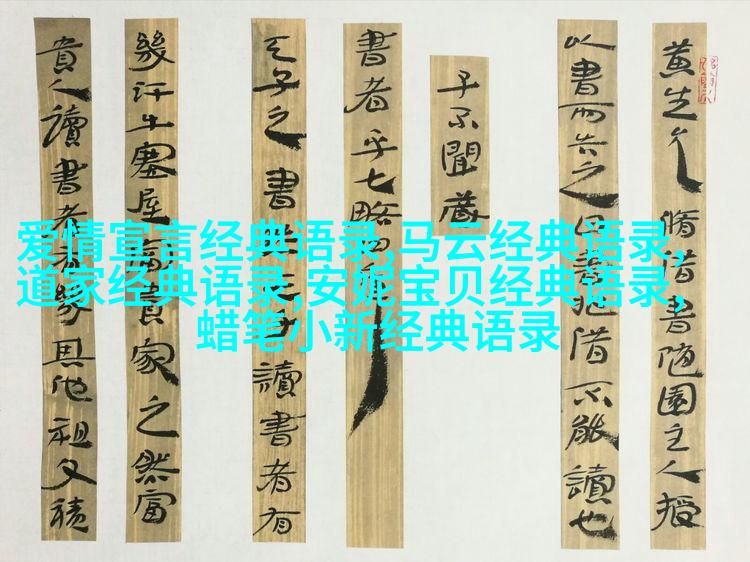 黄生允脩借書随園主人授
以書而告之曰書非借不能讀也
子不聞藏
書者乎七略四
天子之書然天子讀書者有
幾汗牛塞屋富貴家之然富
貴人讀書者有幾其他祖父積
爱情宣言经典语录,马云经典语录,
道家经典语录,安妮宝贝经典语录,
蜡笔小新经典语录